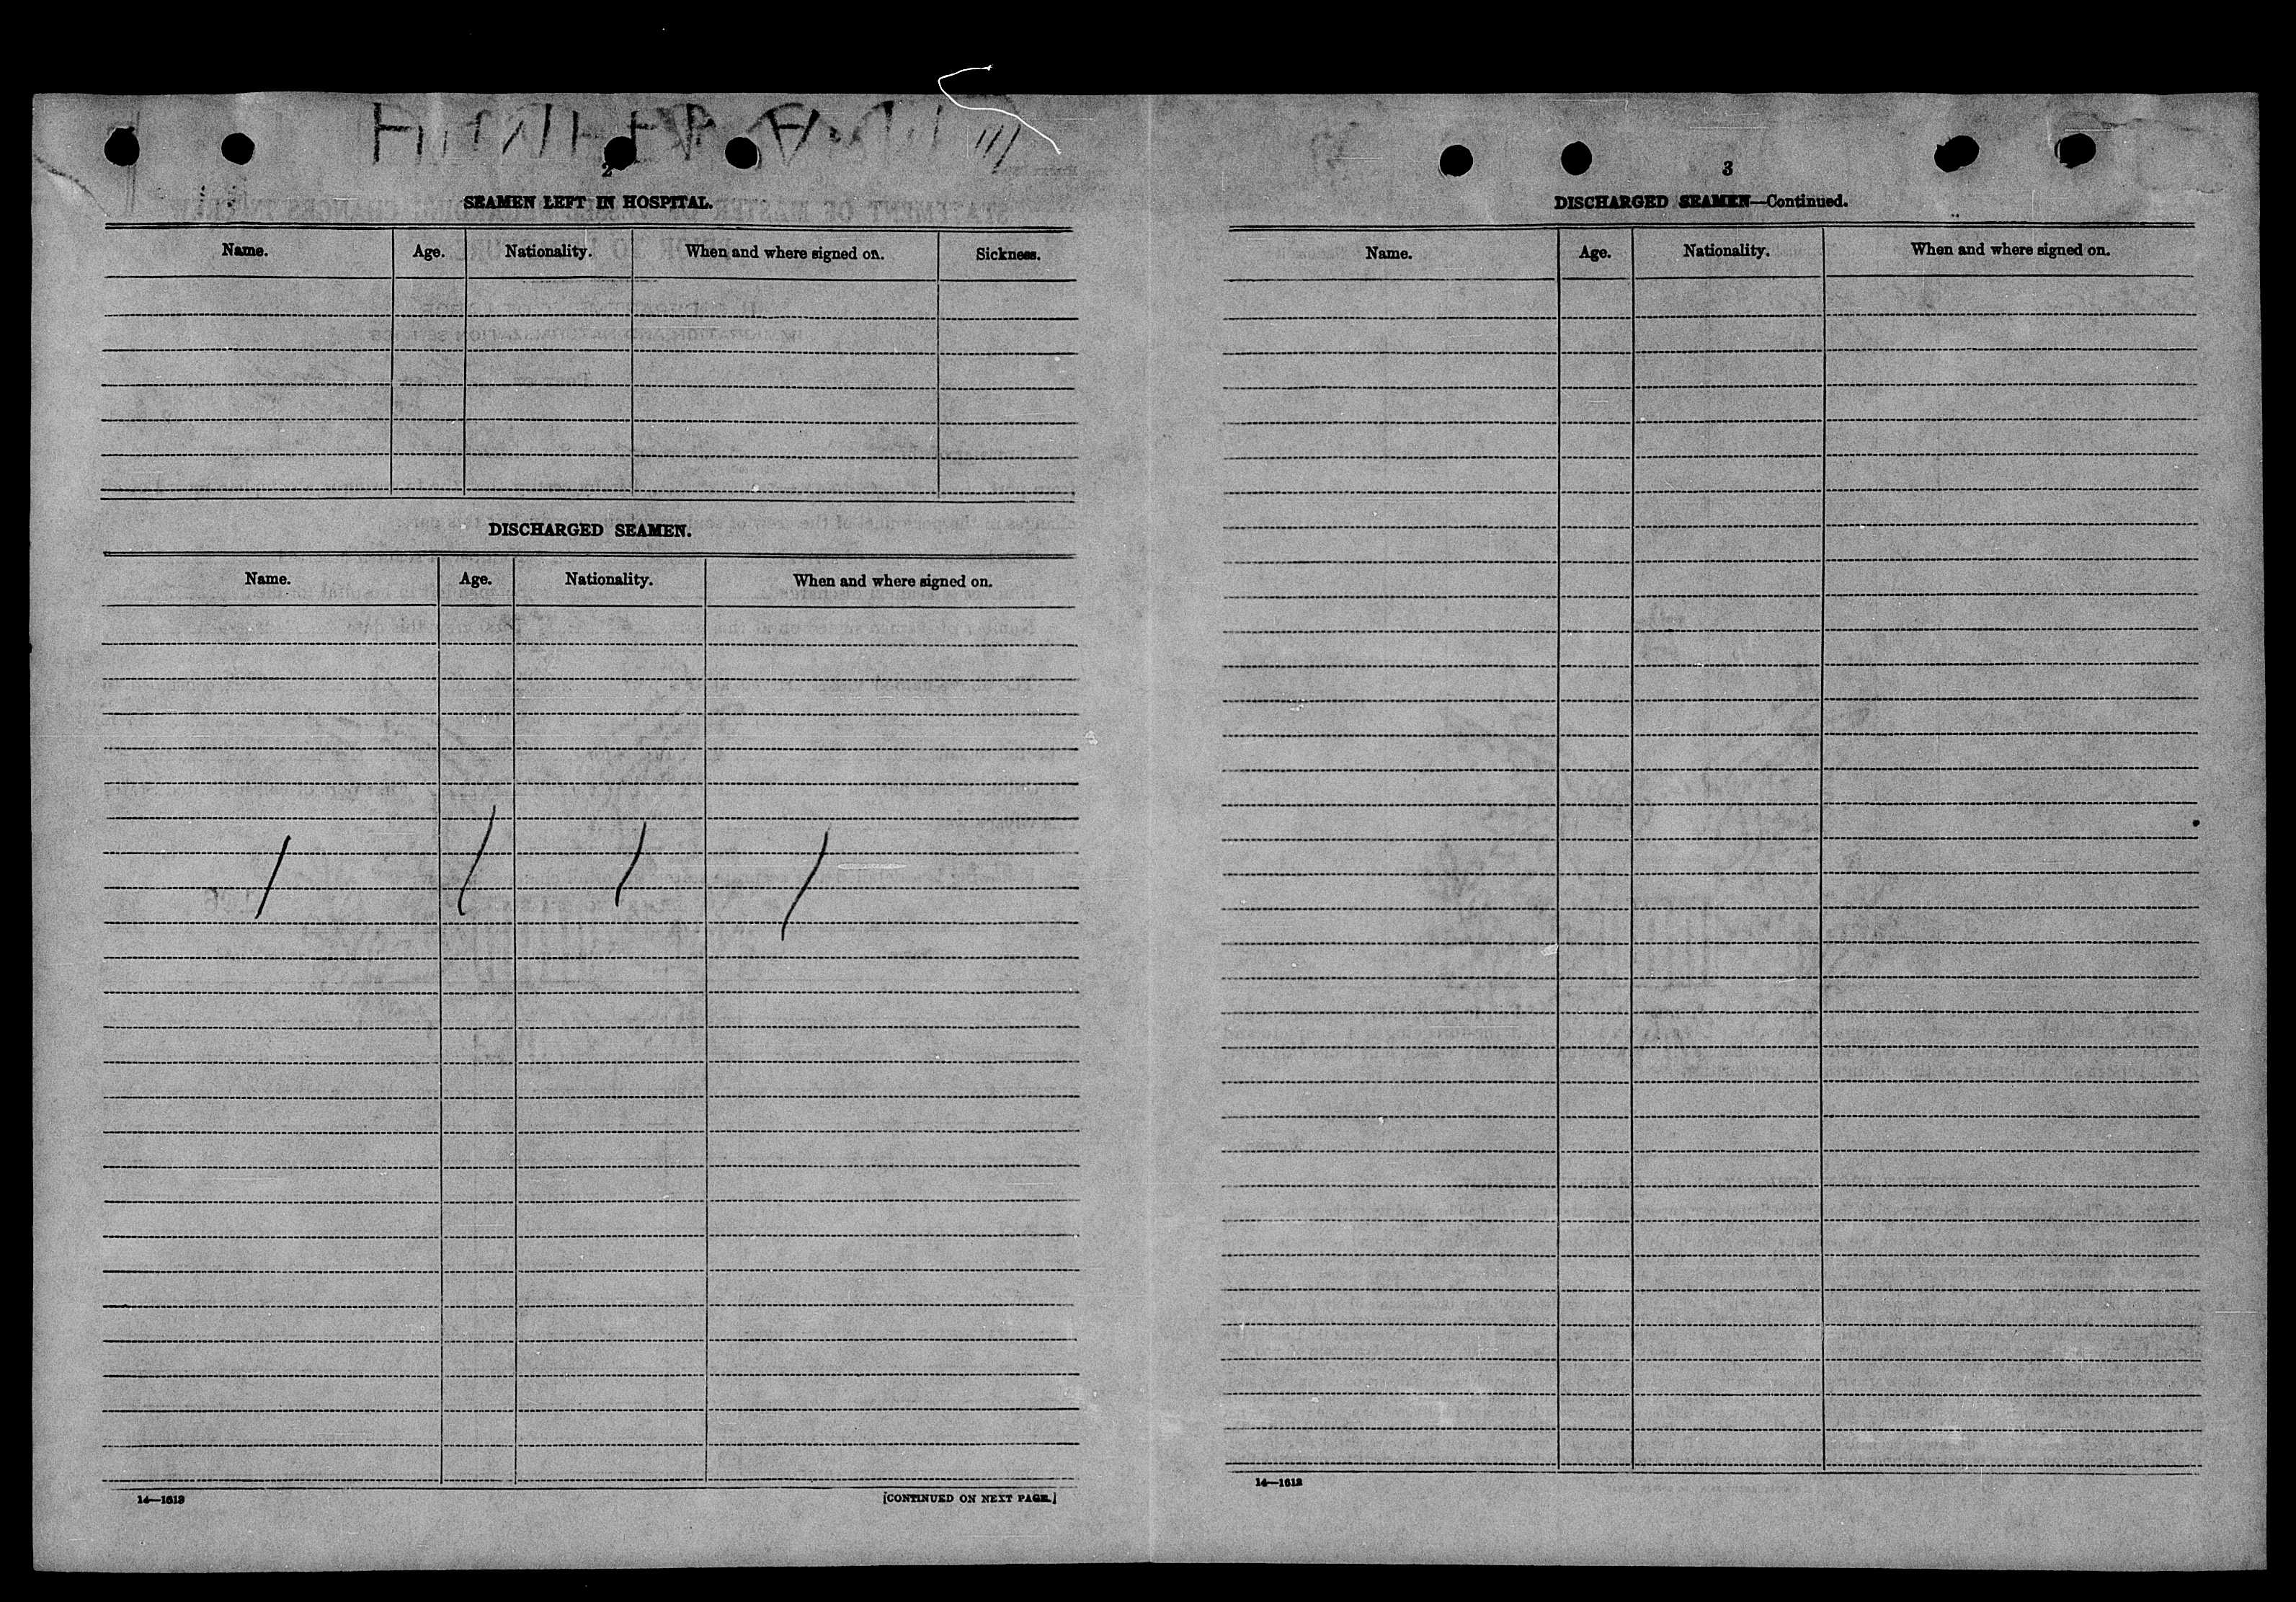 2
SEAMEN LEFT IN HOSPITAL.
Name. Age. Nationality. When and where signed on. Sickness.
DISCHARGED SEAMEN.
Name. Age. Nationality. When and where signed on.
14—1613
[CONTINUED ON NEXT PAGE.]
3
DISCHARGED SEAMEN—Continued.
Name. Age. Nationality. When and where signed on.
14—1613